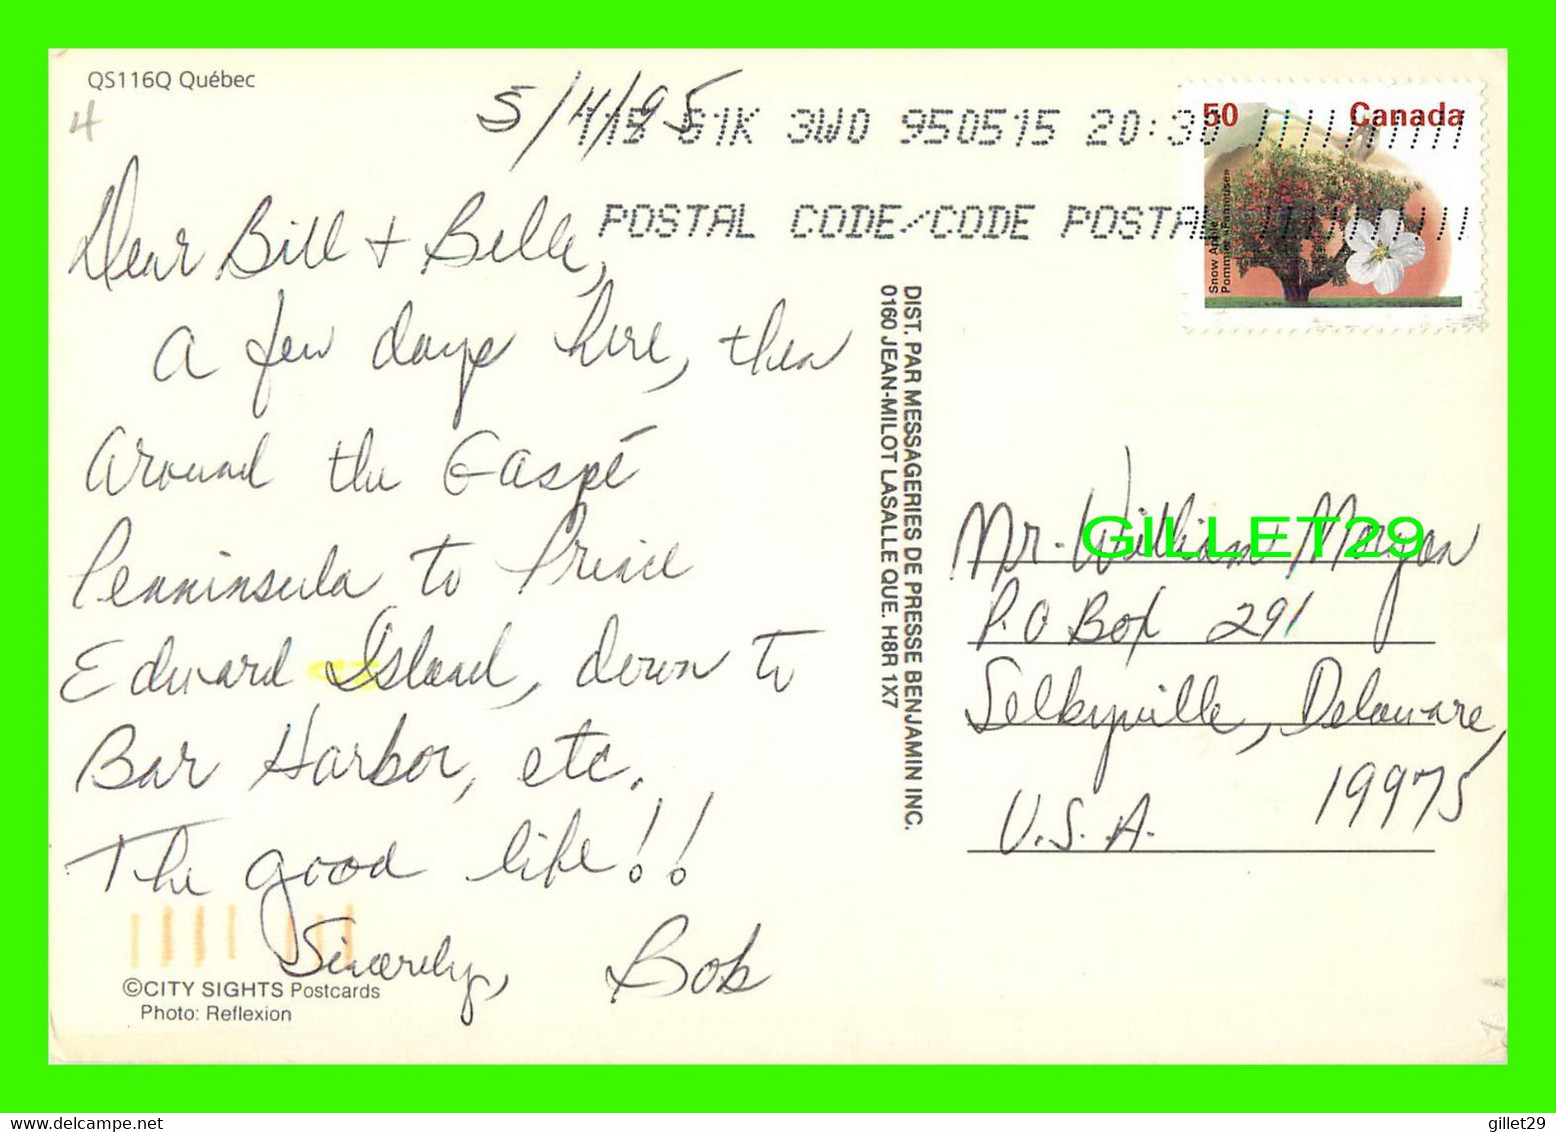 QS116Q Québec
4
5/14/95
3W0 950515 20:30
POSTAL CODE/CODE POSTAL
50 Canada
Snow Apple
Pomme «Fameuse»
Dear Bill + Belle,
A few days here, then
around the Gaspé
Penninsula to Prince
Edward Island, down to
Bar Harbor, etc.
The good life!!
Sincerely, Bob
©CITY SIGHTS Postcards
Photo: Reflexion
DIST. PAR MESSAGERIES DE PRESSE BENJAMIN INC.
0160 JEAN-MILOT LASALLE QUE. H8R 1X7
Mr. William Morgan
P.O Box 291
Selbyville, Delaware,
19975
U.S.A.
GILLET29
delcampe.net
gillet29